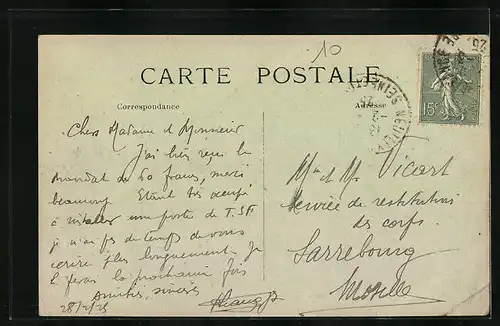 10
CARTE POSTALE
Correspondance
Adresse
15c
NEUILLY
SEINE
Chers Madame et Monsieur
J'ai bien reçu le
mandat de 60 francs, merci
beaucoup. Etant très occupé
à installer une poste de T.S.F
je n'ai pas de temps de vous
écrire plus longuement. Je
le ferai la prochaine fois
Amitiés, sincères
28/2/25
Mme et Mr Vicart
Service de restitution
des corps.
Sarrebourg
Moselle